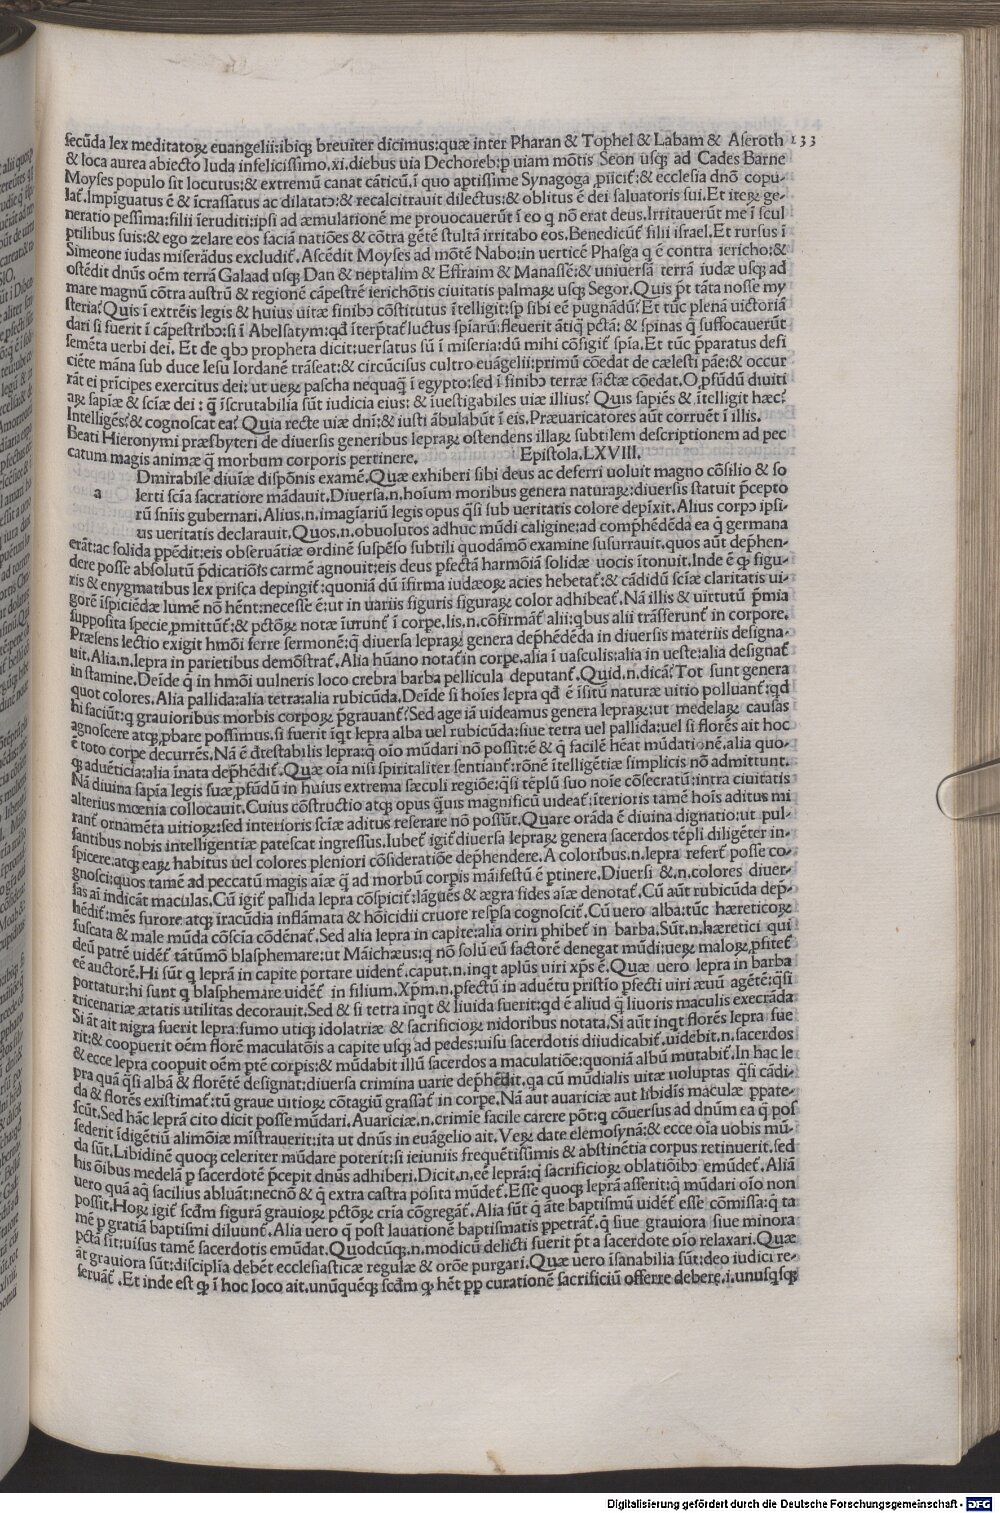 secūda lex meditatoꝝ euangelii:ibiqꝫ breuiter dicimus:quæ inter Pharan & Tophel & Labam & Aseroth 133
& loca aurea abiecto Iuda infelicissimo.xi.diebus uia Dechoreb:p uiam mōtis Seon usqꝫ ad Cades Barne
Moyses populo sit locutus:& extremū canat cāticū.ī quo aptissime Synagoga ,piicit̄:& ecclesia dnō copu-
lat̄.Impīguatus ē & īcrassatus ac dilatatꝰ:& recalcitrauit dilectus:& oblitus ē dei saluatoris sui.Et iteꝝ ge-
neratio pessima:filii īeruditi:ipsi ad æmulationē me prouocauerūt ī eo q nō erat deus.Irritauerūt me ī scul
ptilibus suis:& ego zelare eos faciā natiōes & cōtra gētē stultā irritabo eos.Benedicūt̄ filii israel.Et rursus ī
Simeone iudas miserādus excludit̄.Ascēdit Moyses ad mōtē Nabo:in uerticē Phasga q ē contra iericho:&
ostēdit dnūs oēm terrā Galaad usqꝫ Dan & neptalim & Effraim & Manassē:& uniuersā terrā iudæ usqꝫ ad
mare magnū cōtra austrū & regionē cāpestrē ierichōtis ciuitatis palmaꝝ usqꝫ Segor.Quis p̄t tāta nosse my
steria?Quis ī extrēis legis & huius uitæ finibꝰ cōstitutus ītelligit:sp sibi eē pugnādū?Et tūc plenā uictoriā
dari si fuerit ī cāpestribꝰ:si ī Abelsatym:qđ īterp̄tat̄ luctus spīarū:fleuerit ātiq̄ pctā: & spinas q̄ suffocauerūt
semēta uerbi dei. Et de qbꝰ propheta dicit:uersatus sū ī miseria:dū mihi cōfigit̄ spīa.Et tūc p̄paratus defi
ciēte māna sub duce Iesu Iordanē trāseat:& circūcisus cultro euāgelii:primū cōedat de cælesti pāe:& occur
rāt ei prīcipes exercitus dei: ut ueꝝ pascha nequaq̄ ī egypto:sed ī finibꝰ terræ sāctæ cōedat.O,pfūdū diuiti
aꝝ sapīæ & scīæ dei : q̄ īscrutabilia sūt iudicia eius: & īuestigabiles uiæ illius? Quis sapiēs & ītelligit hæc?
Intelligēs?& cognoscat ea? Quia recte uiæ dnī:& iusti ābulabūt ī eis.Præuaricatores aūt corruēt ī illis.
Beati Hieronymi præsbyteri de diuersis generibus lepraꝝ ostendens illaꝝ subtilem descriptionem ad pec
catum magis animæ q̄ morbum corporis pertinere. Epistola.LXVIII.
Dmirabile diuīæ dispōnis examē.Quæ exhiberi sibi deus ac deferri uoluit magno cōsilio & so
a lerti scīa sacratiore mādauit.Diuersa.n.hoīum moribus genera naturaꝝ:diuersis statuit p̄cepto
rū snīis gubernari.Alius.n.imagīariū legis opus q̄si sub ueritatis colore depīxit.Alius corpꝰ ipsi-
us ueritatis declarauit.Quos.n.obuolutos adhuc mūdi caligine:ad comphēdēda ea q̄ germana
erāt:ac solida ppēdit:eis obseruātiæ ordinē suspēso subtili quodāmō examine susurrauit.quos aūt dep̄hen-
dere posse absolutū p̄dicatiōis carmē agnouit:eis deus pfectā harmōiā solidæ uocis ītonuit.Inde ē qꝫ figu-
ris & enygmatibus lex prisca depingit̄:quoniā dū īfirma iudæoꝝ acies hebetat̄:& cādidū scīæ claritatis ui-
gorē īspiciēdæ lumē nō hēnt:necesse ē:ut in uariis figuris figuraꝝ color adhibeat̄.Nā illis & uirtutū p̄mia
supposita specie,pmittūt̄:& pctōꝝ notæ īurunt̄ ī corpe.Iis.n.cōfirmāt̄ alii:qbus alii trāsferunt̄ in corpore.
Præsens lectio exigit hmōi ferre sermonē:q̄ diuersa lepraꝝ genera dep̄hēdēda in diuersis materiis designa-
uit.Alia.n.lepra in parietibus demōstrat̄.Alia hūano notat̄ in corpe.alia ī uasculis:alia in ueste:alia designat̄
in stamine.Deīde q̄ in hmōi uulneris loco crebra barba pellicula deputant̄.Quid.n.dicā?Tot sunt genera
quot colores.Alia pallida:alia tetra:alia rubicūda.Deīde si hoīes lepra qđ ē īsitū naturæ uitio polluant̄:qđ
hi faciūt:q grauioribus morbis corpoꝝ p̄grauant̄?Sed age iā uideamus genera lepraꝝ:ut medelaꝝ causas
agnoscere atqꝫ,pbare possimus.si fuerit īqt lepra alba uel rubicūda:siue tetra uel pallida:uel si florēs ait hoc
ē toto corpe decurrēs.Nā ē đtestabilis lepra:q̄ oīo mūdari nō possit:ē & q̄ facilē hēat mūdationē.alia quo-
qꝫ aduēticia:alia īnata dep̄hēdit̄.Quæ oīa nisi spiritaliter sentiant̄:rōnē ītelligētiæ simplicis nō admittunt.
Nā diuina sapīa legis suæ,pfūdū in huius extrema sæculi regiōe:q̄si tēplū suo noīe cōsecratū:intra ciuitatis
alterius mœnia collocauit.Cuius cōstructio atqꝫ opus q̄uis magnificū uideat̄:īterioris tamē hoīs aditus mi
rant̄ ornamēta uitioꝝ:sed interioris scīæ aditus reserare nō possūt.Quare orāda ē diuina dignatio:ut pul-
santibus nobis intelligentiæ patescat ingressus.Iubet̄ igit̄ diuersa lepraꝝ genera sacerdos tēpli diligēter in-
spicere.atqꝫ eaꝝ habitus uel colores pleniori cōsideratiōe dep̄hendere.A coloribus.n.lepra refert̄ posse co-
gnosci:quos tamē ad peccatū magis aīæ q̄ ad morbū corpis māifestū ē ptinere.Diuersi &.n.colores diuer-
sas aī indicāt maculas.Cū igit̄ pallida lepra cōspicit̄:lāguēs & ægra fides aīæ denotat̄.Cū aūt rubicūda dep̄-
hēdit̄:mēs furore atqꝫ iracūdia inflāmata & hōicidii cruore resp̄sa cognoscit̄.Cū uero alba:tūc hæreticoꝝ
fuscata & male mūda cōscīa cōdēnat̄.Sed alia lepra in capite:alia oriri phibet̄ in barba.Sūt.n.hæretici qui
deū patrē uidēt̄ tātūmō blasphemare:ut Māichæus:q nō solū eū factorē denegat mūdi:ueꝝ maloꝝ,pfitet̄
eē auctorē.Hi sūt q leprā in capite portare uident̄.caput.n.inqt aplūs uiri xp̄s ē.Quæ uero lepra in barba
portatur:hi sunt q blasphemare uidēt̄ in filium.Xp̄m.n.pfectū in aduētu pristio pfecti uiri æuū agētē:q̄si
tricenariæ ætatis utilitas decorauit.Sed & si tetra inqt & liuida fuerit:qđ ē aliud q̄ liuoris maculis execrāda
Si āt ait nigra fuerit lepra:fumo utiqꝫ idolatriæ & sacrificioꝝ nidoribus notata.Si aūt inqt florēs lepra fue
rit:& coopuerit oēm florē maculatōis a capite usqꝫ ad pedes:uisu sacerdotis diiudicabit̄.uidebit.n.sacerdos
& ecce lepra coopuit oēm ptē corpis:& mūdabit illū sacerdos a maculatiōe:quoniā albū mutabit̄.In hac le
pra quā q̄si albā & florētē designat:diuersa crimina uarie dep̄hēdit.qa cū mūdialis uitæ uoluptas q̄si cādi-
da & florēs existimat̄:tū graue uitioꝝ cōtagiū grassat̄ in corpe.Nā aut auariciæ aut libidīs maculæ ppate-
scūt.Sed hāc leprā cito dicit posse mūdari.Auariciæ.n.crimīe facile carere pōt:q cōuersus ad dnūm ea q̄ pos
sederit īdigētiū alimōiæ mīstrauerit:ita ut dnūs in euāgelio ait.Veꝝ date elemosynā:& ecce oīa uobis mū-
da sūt.Libidinē quoqꝫ celeriter mūdare poterit:si ieiuniis frequētissimis & abstinētia corpus retinuerit.sed
his oībus medelā p sacerdotē p̄cepit dnūs adhiberi.Dicit.n.eē leprā:q̄ sacrificioꝝ oblatiōibꝰ emūdet̄.Aliā
uero quā aq̄ facilius abluāt:necnō & q̄ extra castra posita mūdet̄.Esse quoqꝫ leprā asserit:q̄ mūdari oīo non
possit.Hoꝝ igit̄ scdm figurā grauioꝝ pctōꝝ crīa cōgregāt̄.Alia sūt q̄ āte baptismū uidēt̄ esse cōmissa:q̄ ta
mē p gratiā baptismi diluunt̄.Alia uero q̄ post lauationē baptismatis ppetrāt̄.q̄ siue grauiora siue minora
pctā sīt:uisus tamē sacerdotis emūdat.Quodcūqꝫ.n.modicū delicti fuerit p̄t a sacerdote oīo relaxari.Quæ
āt grauiora sūt:disciplīa debēt ecclesiasticæ regulæ & orōe purgari.Quæ uero īsanabilia sūt:deo iudici re-
seruāt̄ .Et inde est qꝫ ī hoc loco ait.unūquēqꝫ scđm qꝫ hēt pp curationē sacrificiū offerre debere.i.unusqsqꝫ
Digitalisierung gefördert durch die Deutsche Forschungsgemeinschaft - DFG